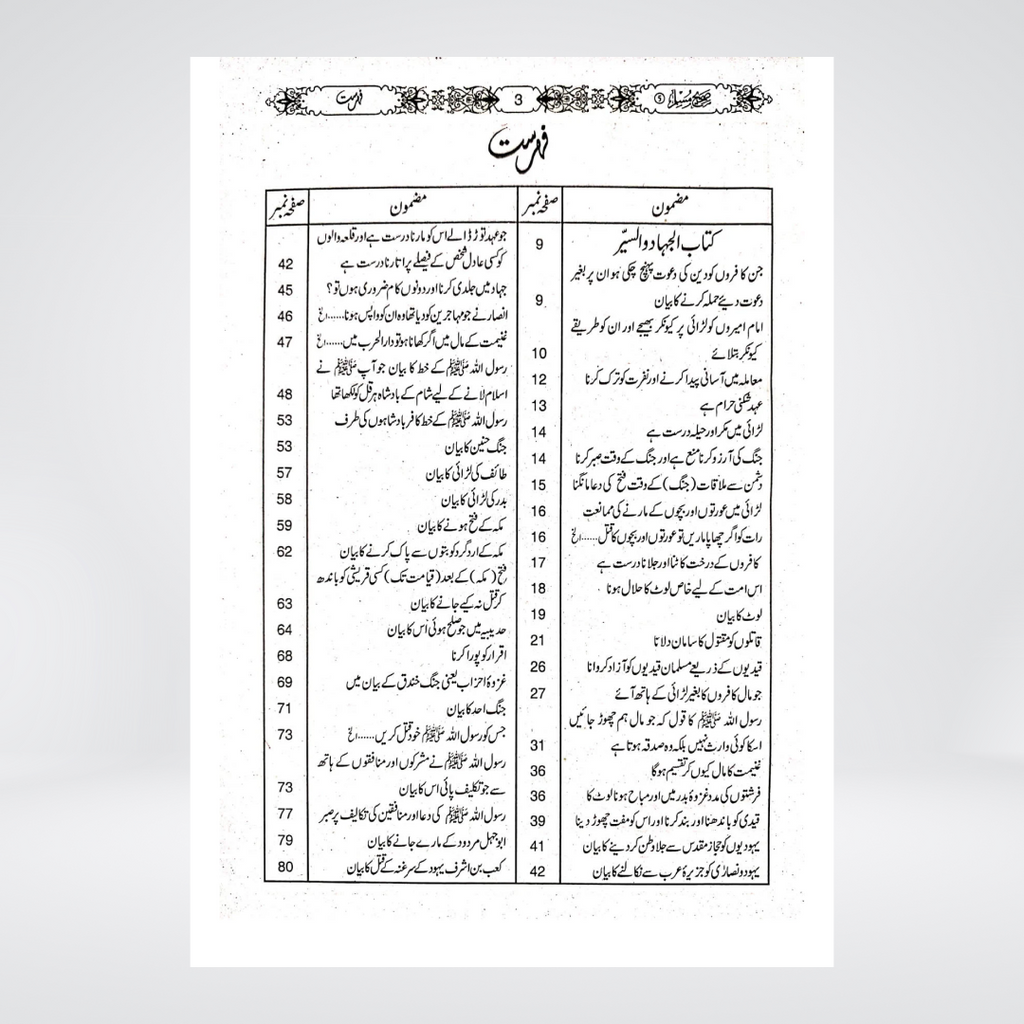 صحیح مسلم ⑤
3
فہرست
فہرست
مضمون
صفحہ نمبر
کتاب الجہاد والسیّر
9
جن کافروں کو دین کی دعوت پہنچ چکی ہو ان پر بغیر
دعوت دیئے حملہ کرنے کا بیان
9
امام امیروں کو لڑائی پر کیونکر بھیجے اور ان کو طریقے
کیونکر بتلائے
10
معاملہ میں آسانی پیدا کرنے اور نفرت کو ترک کرنا
12
عہد شکنی حرام ہے
13
لڑائی میں مکر اور حیلہ درست ہے
14
جنگ کی آرزو کرنا منع ہے اور جنگ کے وقت صبر کرنا
14
دشمن سے ملاقات (جنگ) کے وقت فتح کی دعا مانگنا
15
لڑائی میں عورتوں اور بچوں کے مارنے کی ممانعت
16
رات کو اگر چھاپا ماریں تو عورتوں اور بچوں کا قتل......الخ
16
کافروں کے درخت کاٹنا اور جلانا درست ہے
17
اس امت کے لیے خاص لوٹ کا حلال ہونا
18
لوٹ کا بیان
19
قاتلوں کو مقتول کا سامان دلانا
21
قیدیوں کے ذریعے مسلمان قیدیوں کو آزاد کروانا
26
جو مال کافروں کا بغیر لڑائی کے ہاتھ آئے
27
رسول اللہ ﷺ کا قول کہ جو مال ہم چھوڑ جائیں
اسکا کوئی وارث نہیں بلکہ وہ صدقہ ہوتا ہے
31
غنیمت کا مال کیوں کر تقسیم ہوگا
36
فرشتوں کی مدد غزوہ بدر میں اور مباح ہونا لوٹ کا
36
قیدی کو باندھنا اور بند کرنا اور اس کو مفت چھوڑ دینا
39
یہودیوں کو حجاز مقدس سے جلا وطن کر دینے کا بیان
41
یہود و نصارٰی کو جزیرۂ عرب سے نکالنے کا بیان
42
مضمون
صفحہ نمبر
جو عہد توڑ ڈالے اس کو مارنا درست ہے اور قلعہ والوں
کو کسی عادل شخص کے فیصلے پر اتارنا درست ہے
42
جہاد میں جلدی کرنا اور دونوں کام ضروری ہوں تو؟
45
انصار نے جو مہاجرین کو دیا تھا وہ ان کو واپس ہونا......الخ
46
غنیمت کے مال میں اگر کھانا ہو تو دارالحرب میں......الخ
47
رسول اللہ ﷺ کے خط کا بیان جو آپ ﷺ نے
اسلام لانے کے لیے شام کے بادشاہ ہرقل کو لکھا تھا
48
رسول اللہ ﷺ کے خط کافر بادشاہوں کی طرف
53
جنگ حنین کا بیان
53
طائف کی لڑائی کا بیان
57
بدر کی لڑائی کا بیان
58
مکہ کے فتح ہونے کا بیان
59
مکہ کے ارد گرد کو بتوں سے پاک کرنے کا بیان
62
فتح (مکہ) کے بعد (قیامت تک) کسی قریشی کو باندھ
کر قتل نہ کیے جانے کا بیان
63
حدیبیہ میں جو صلح ہوئی اس کا بیان
64
اقرار کو پورا کرنا
68
غزوۂ احزاب یعنی جنگ خندق کے بیان میں
69
جنگ احد کا بیان
71
جس کو رسول اللہ ﷺ خود قتل کریں......الخ
73
رسول اللہ ﷺ نے مشرکوں اور منافقوں کے ہاتھ
سے جو تکلیف پائی اس کا بیان
73
رسول اللہ ﷺ کی دعا اور منافقین کی تکالیف پر صبر
77
ابو جہل مردود کے مارے جانے کا بیان
79
کعب بن اشرف یہود کے سرغنہ کے قتل کا بیان
80